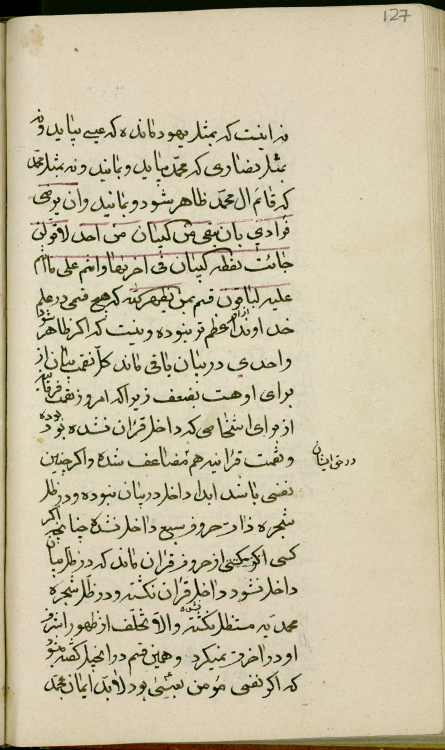 127
نه اینست که بمثل یهود مانده که عیسی بیاید و نه
بمثل نصاری که محمد بیاید و نمانید و نه بمثل محمد
که قائم ال محمد ظاهر شود و نمانید وان
فؤادی بان من کینان من احد
جائت نقطه کینان فی اخریها وانتم علی ما انتم
علیه که هیچ قسمی در علم
خداوند اعظم تر نبوده و نیست که اکر ظاهر شود
واحدی در بیان باقی ماند کل نقمت بیان از
برای او هست بضعف زیرا که امروز نقمت فرقان
از برای اشخاصی که داخل قران نشده بوده
و نقمت قرانیه هم مضاعف شده و اکر چنین
در حق ایشان
نفسی باشد ابدا داخل در بیان نبوده و در ظل
شجره ذات حروف سبع داخل نشده چنانچه اکر
کسی از حروف قران ماند که در ظل بیان
داخل نشود داخل قران نکشته و در ظل شجره
محمدیه مستظل نکشته والا تخلف از ظهور اشرف
او در اخرت نمیکرد و همین قسم در انجیل کفته
که اکر نفسی مؤمن بعیسی بود لابد ایمان بمحمد